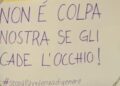 NON È COLPA
NOSTRA SE GLI
CADE L'OCCHIO!